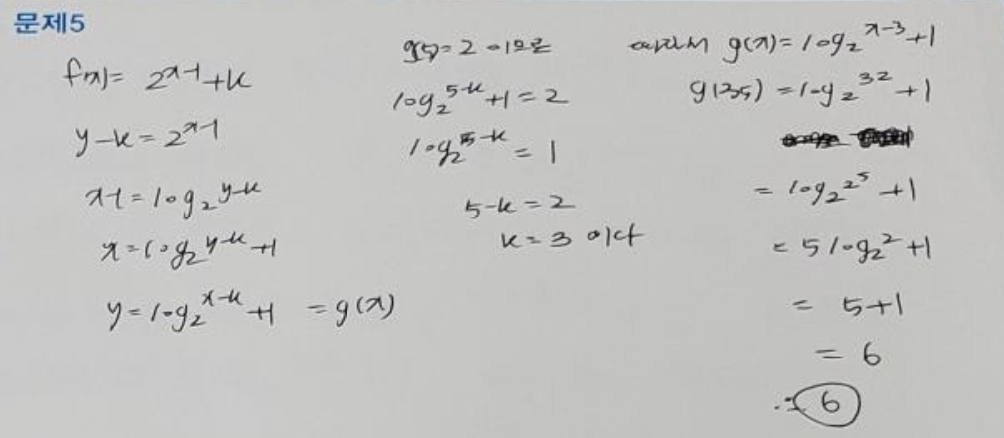 문제5
f(x)= 2^{x-1}+k
y-k=2^{x-1}
x-1=log_2 y-k
x=log_2 y-k +1
y=log_2 x-k +1 = g(x)
g(5)=2 이므로
log_2 5-k +1=2
log_2 5-k = 1
5-k=2
k=3 이다
따라서 g(x)=log_2 x-3 +1
g(35) =log_2 32 +1
= log_2 2^5 +1
= 5log_2 2 +1
= 5+1
= 6
∴ 6